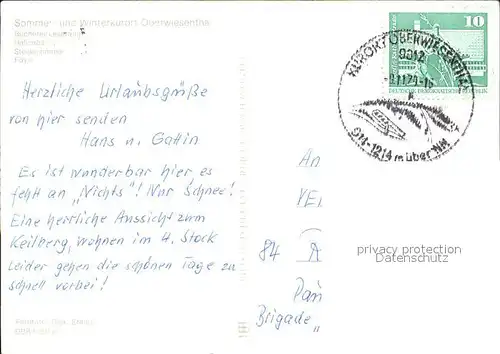 Sommer- und Winterkurort Oberwiesenthal
10
DEUTSCHE DEMOKRATISCHE REPUBLIK
KURORT OBERWIESENTHAL
9312
914-1214 m über NN
Herzliche Urlaubsgrüße
von hier senden
Hans u. Gattin
Es ist wunderbar hier, es
fehlt an „Nichts"! Nur Schnee!
Eine herrliche Aussicht zum
Keilberg, wohnen im 4. Stock
Leider gehen die schönen Tage zu
schnell vorbei!
An
VE
84
Pau
Brigade „
privacy protection
Datenschutz